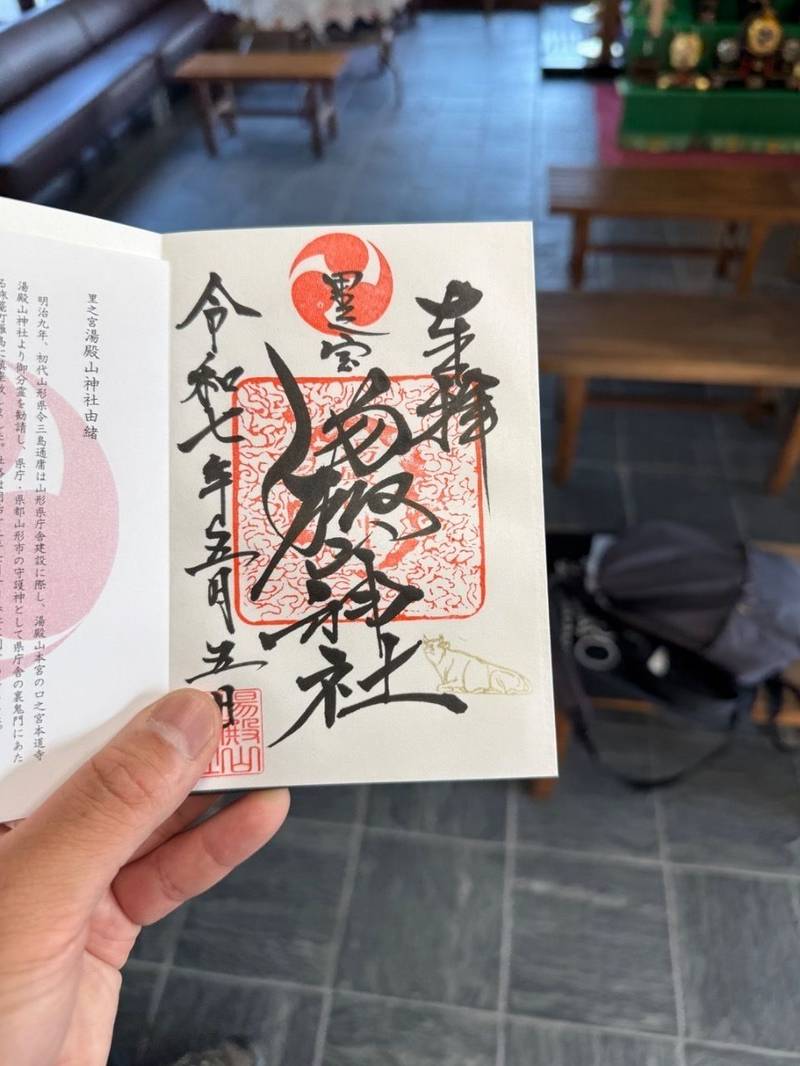 奉拝
里之宮
湯殿山神社
令和七年五月五日
里之宮湯殿山神社由緒
明治九年、初代山形県令三島通庸は山形県庁舎建設に際し、湯殿山本宮の口之宮本道寺
湯殿山神社より御分霊を勧請し、県庁・県都山形市の守護神として県庁舎の裏鬼門にあた